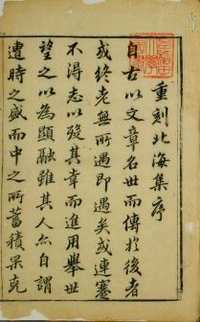 重刻北海集序
自古以文章名世而傳於後者
或終老無所遇即遇矣或連蹇
不得志以發其奇而進用舉世
望之以為顯融雖其人亦自謂
遭時之盛而中之所蓄積果克